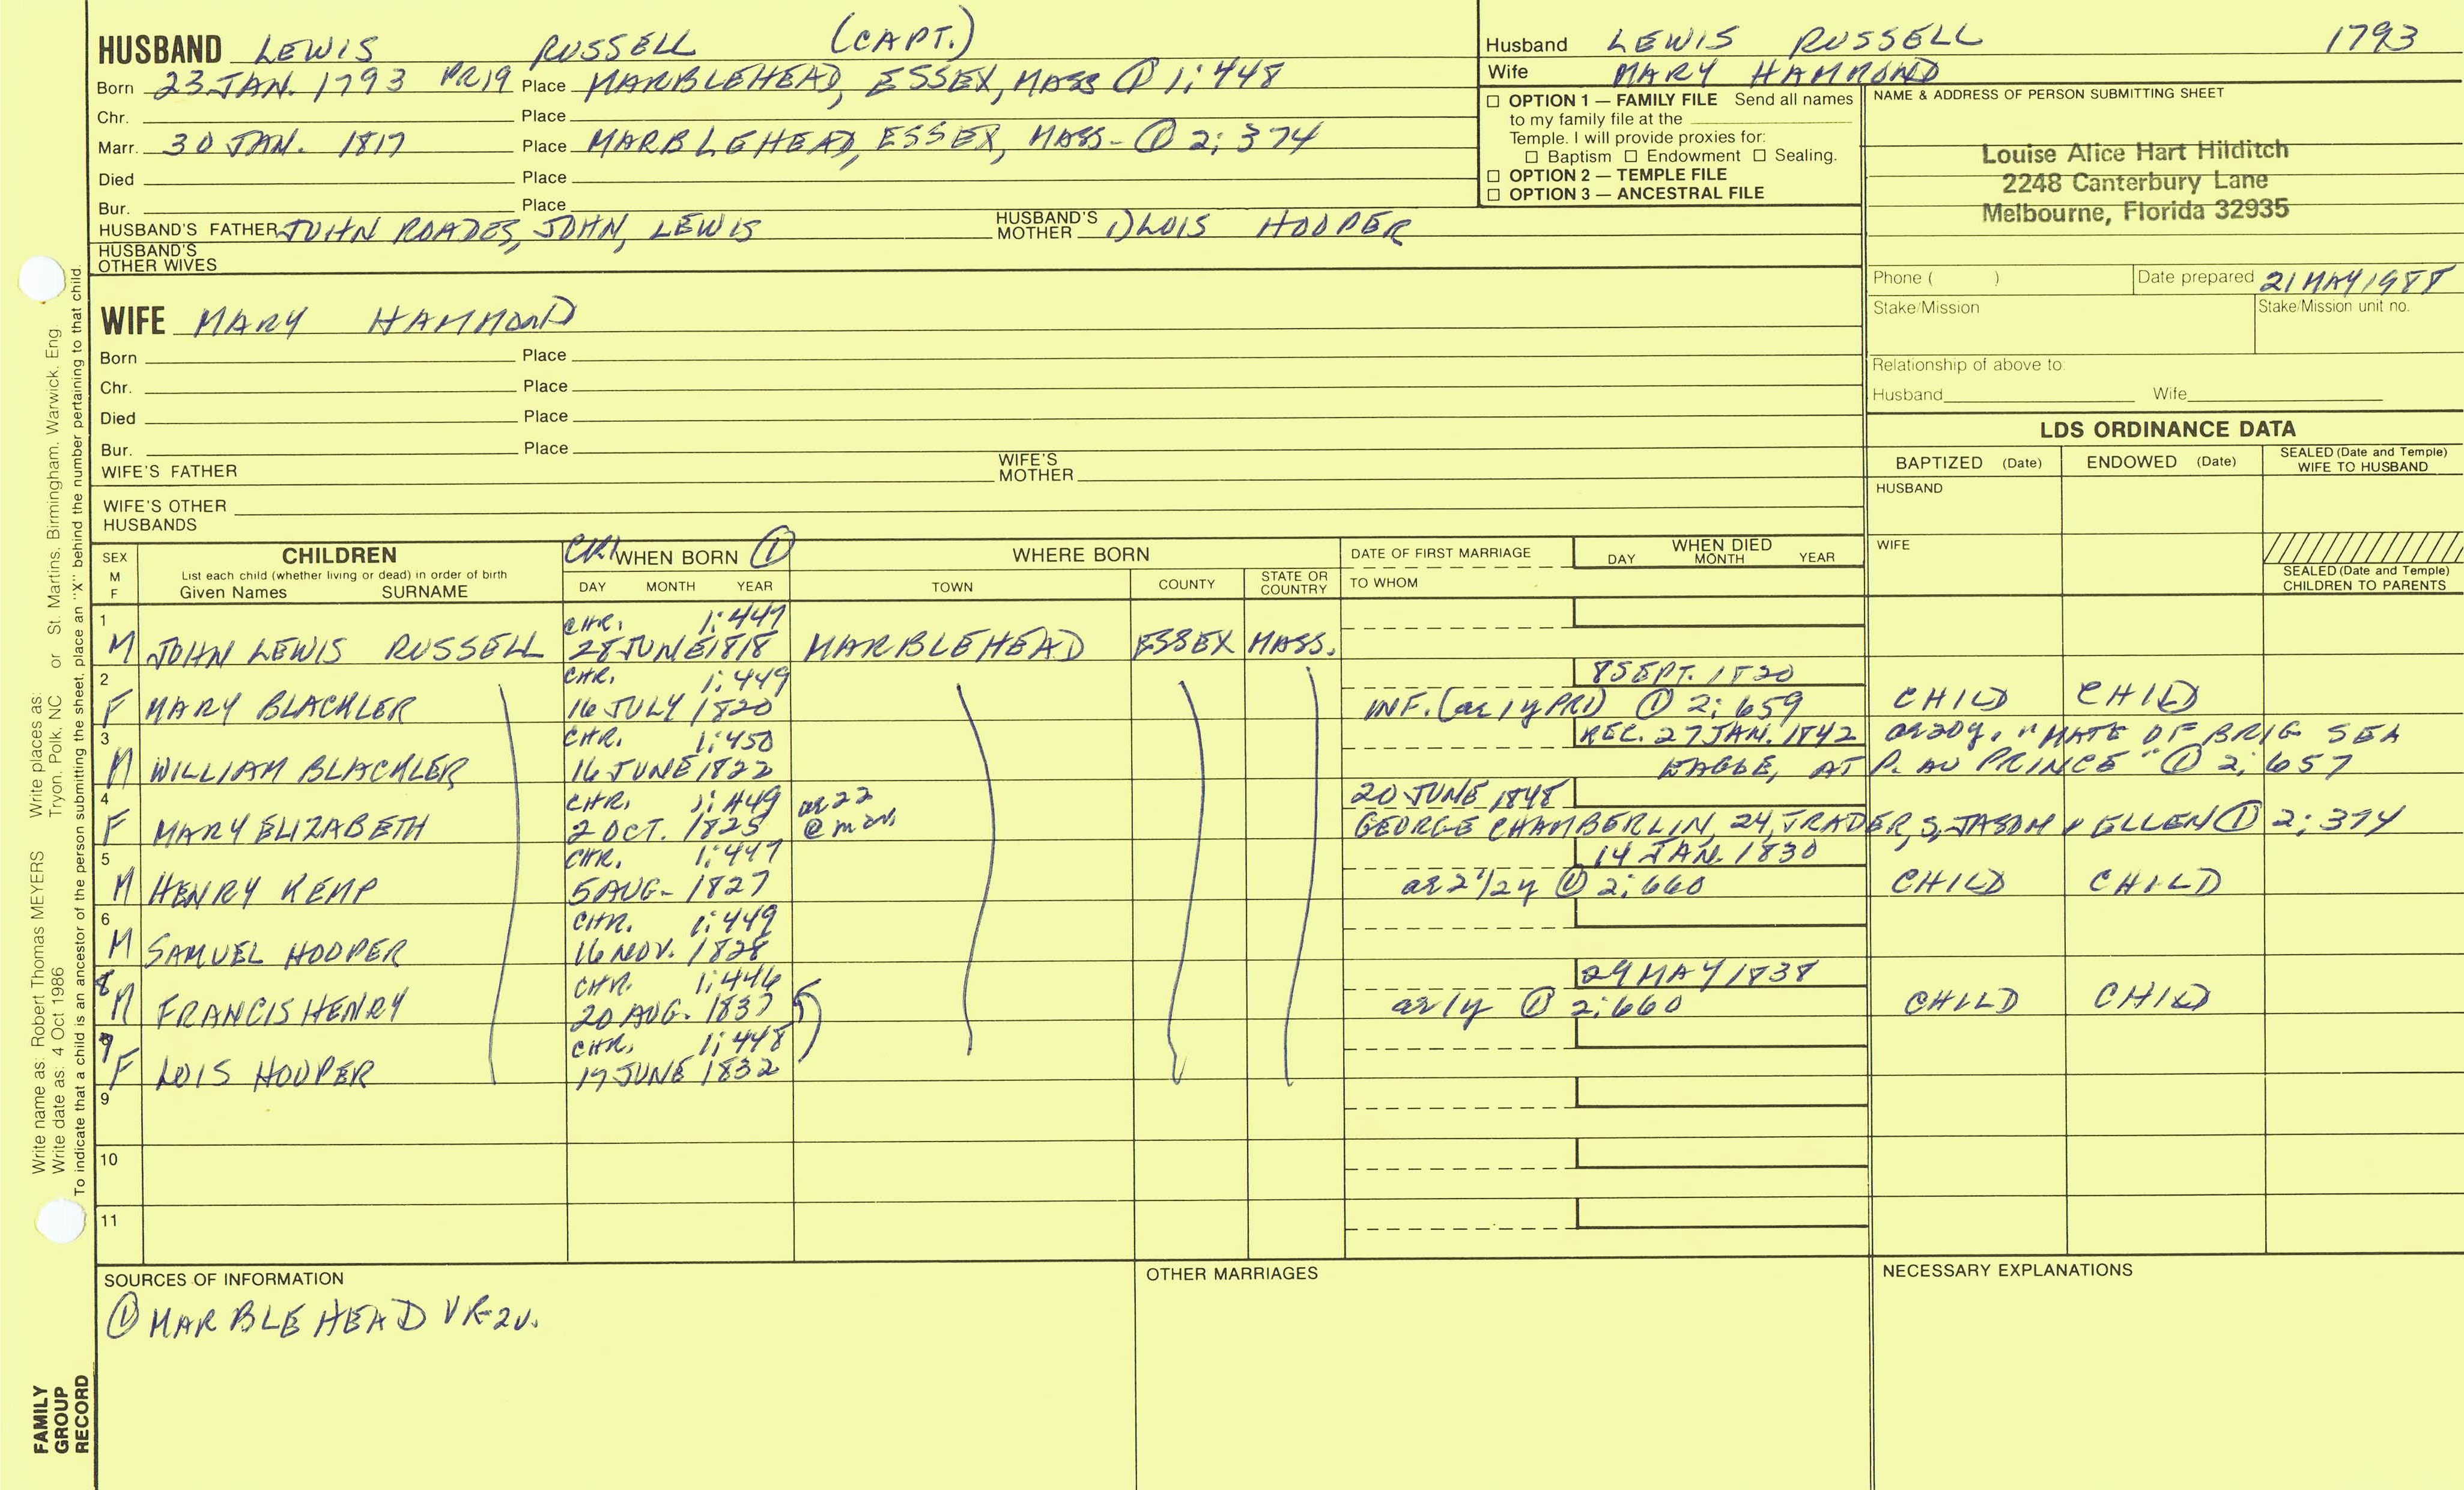 HUSBAND LEWIS RUSSELL (CAPT.)
Born 23 JAN. 1793 PR19 Place MARBLEHEAD, ESSEX, MASS ① 1:448
Chr. Place
Marr. 30 JAN. 1817 Place MARBLEHEAD, ESSEX, MASS- ① 2:374
Died Place
Bur. Place
HUSBAND'S FATHER JOHN ROADES, JOHN, LEWIS HUSBAND'S MOTHER 1) LOIS HOOPER
HUSBAND'S OTHER WIVES
Husband LEWIS RUSSELL 1793
Wife MARY HAMMOND
☐ OPTION 1 — FAMILY FILE Send all names
to my family file at the
Temple. I will provide proxies for:
☐ Baptism ☐ Endowment ☐ Sealing.
☐ OPTION 2 — TEMPLE FILE
☐ OPTION 3 — ANCESTRAL FILE
NAME & ADDRESS OF PERSON SUBMITTING SHEET
Louise Alice Hart Hilditch
2248 Canterbury Lane
Melbourne, Florida 32935
Phone ( ) Date prepared 21 MAY 1988
Stake/Mission Stake/Mission unit no.
Relationship of above to:
Husband Wife
WIFE MARY HAMMOND
Born Place
Chr. Place
Died Place
Bur. Place
WIFE'S FATHER WIFE'S MOTHER
WIFE'S OTHER HUSBANDS
LDS ORDINANCE DATA
BAPTIZED (Date) ENDOWED (Date) SEALED (Date and Temple) WIFE TO HUSBAND
HUSBAND
WIFE
SEALED (Date and Temple) CHILDREN TO PARENTS
SEX M F
CHILDREN
List each child (whether living or dead) in order of birth
Given Names SURNAME
CR1 WHEN BORN ①
DAY MONTH YEAR
WHERE BORN
TOWN COUNTY STATE OR COUNTRY
DATE OF FIRST MARRIAGE
TO WHOM
WHEN DIED
DAY MONTH YEAR
1 CHR. 1:447
M JOHN LEWIS RUSSELL 28 JUNE 1818 MARBLEHEAD ESSEX MASS.
2 CHR. 1:449 8 SEPT. 1820
F MARY BLACKLER 16 JULY 1820 INF. (ae 1y PR1) ① 2:659 CHILD CHILD
3 CHR. 1:450 REC. 27 JAN. 1842 ae 20y, "MATE OF BRIG SEA
M WILLIAM BLACKLER 16 JUNE 1822 EAGLE, AT P. AU PRINCE" ① 2:657
4 CHR. 1:449 ae 22 20 JUNE 1848
F MARY ELIZABETH 2 OCT. 1825 @ mar. GEORGE CHAMBERLIN, 24, TRADER, S, JASON & ELLEN ① 2:374
5 CHR. 1:447 14 JAN. 1830
M HENRY KEMP 5 AUG- 1827 ae 2 1/2y ① 2:660 CHILD CHILD
6 CHR. 1:449
M SAMUEL HOOPER 16 NOV. 1828
8 CHR. 1:446 29 MAY 1838
M FRANCIS HENRY 20 AUG. 1837 ae 1y ① 2:660 CHILD CHILD
9 CHR. 1:448
F LOIS HOOPER 17 JUNE 1832
9
10
11
SOURCES OF INFORMATION
① MARBLEHEAD VR-2v.
OTHER MARRIAGES
NECESSARY EXPLANATIONS
Write name as: Robert Thomas MEYERS Write places as: Tryon, Polk, NC or St. Martins, Birmingham, Warwick, Eng
Write date as: 4 Oct 1986
To indicate that a child is an ancestor of the person submitting the sheet, place an "X" behind the number pertaining to that child.
FAMILY
GROUP
RECORD